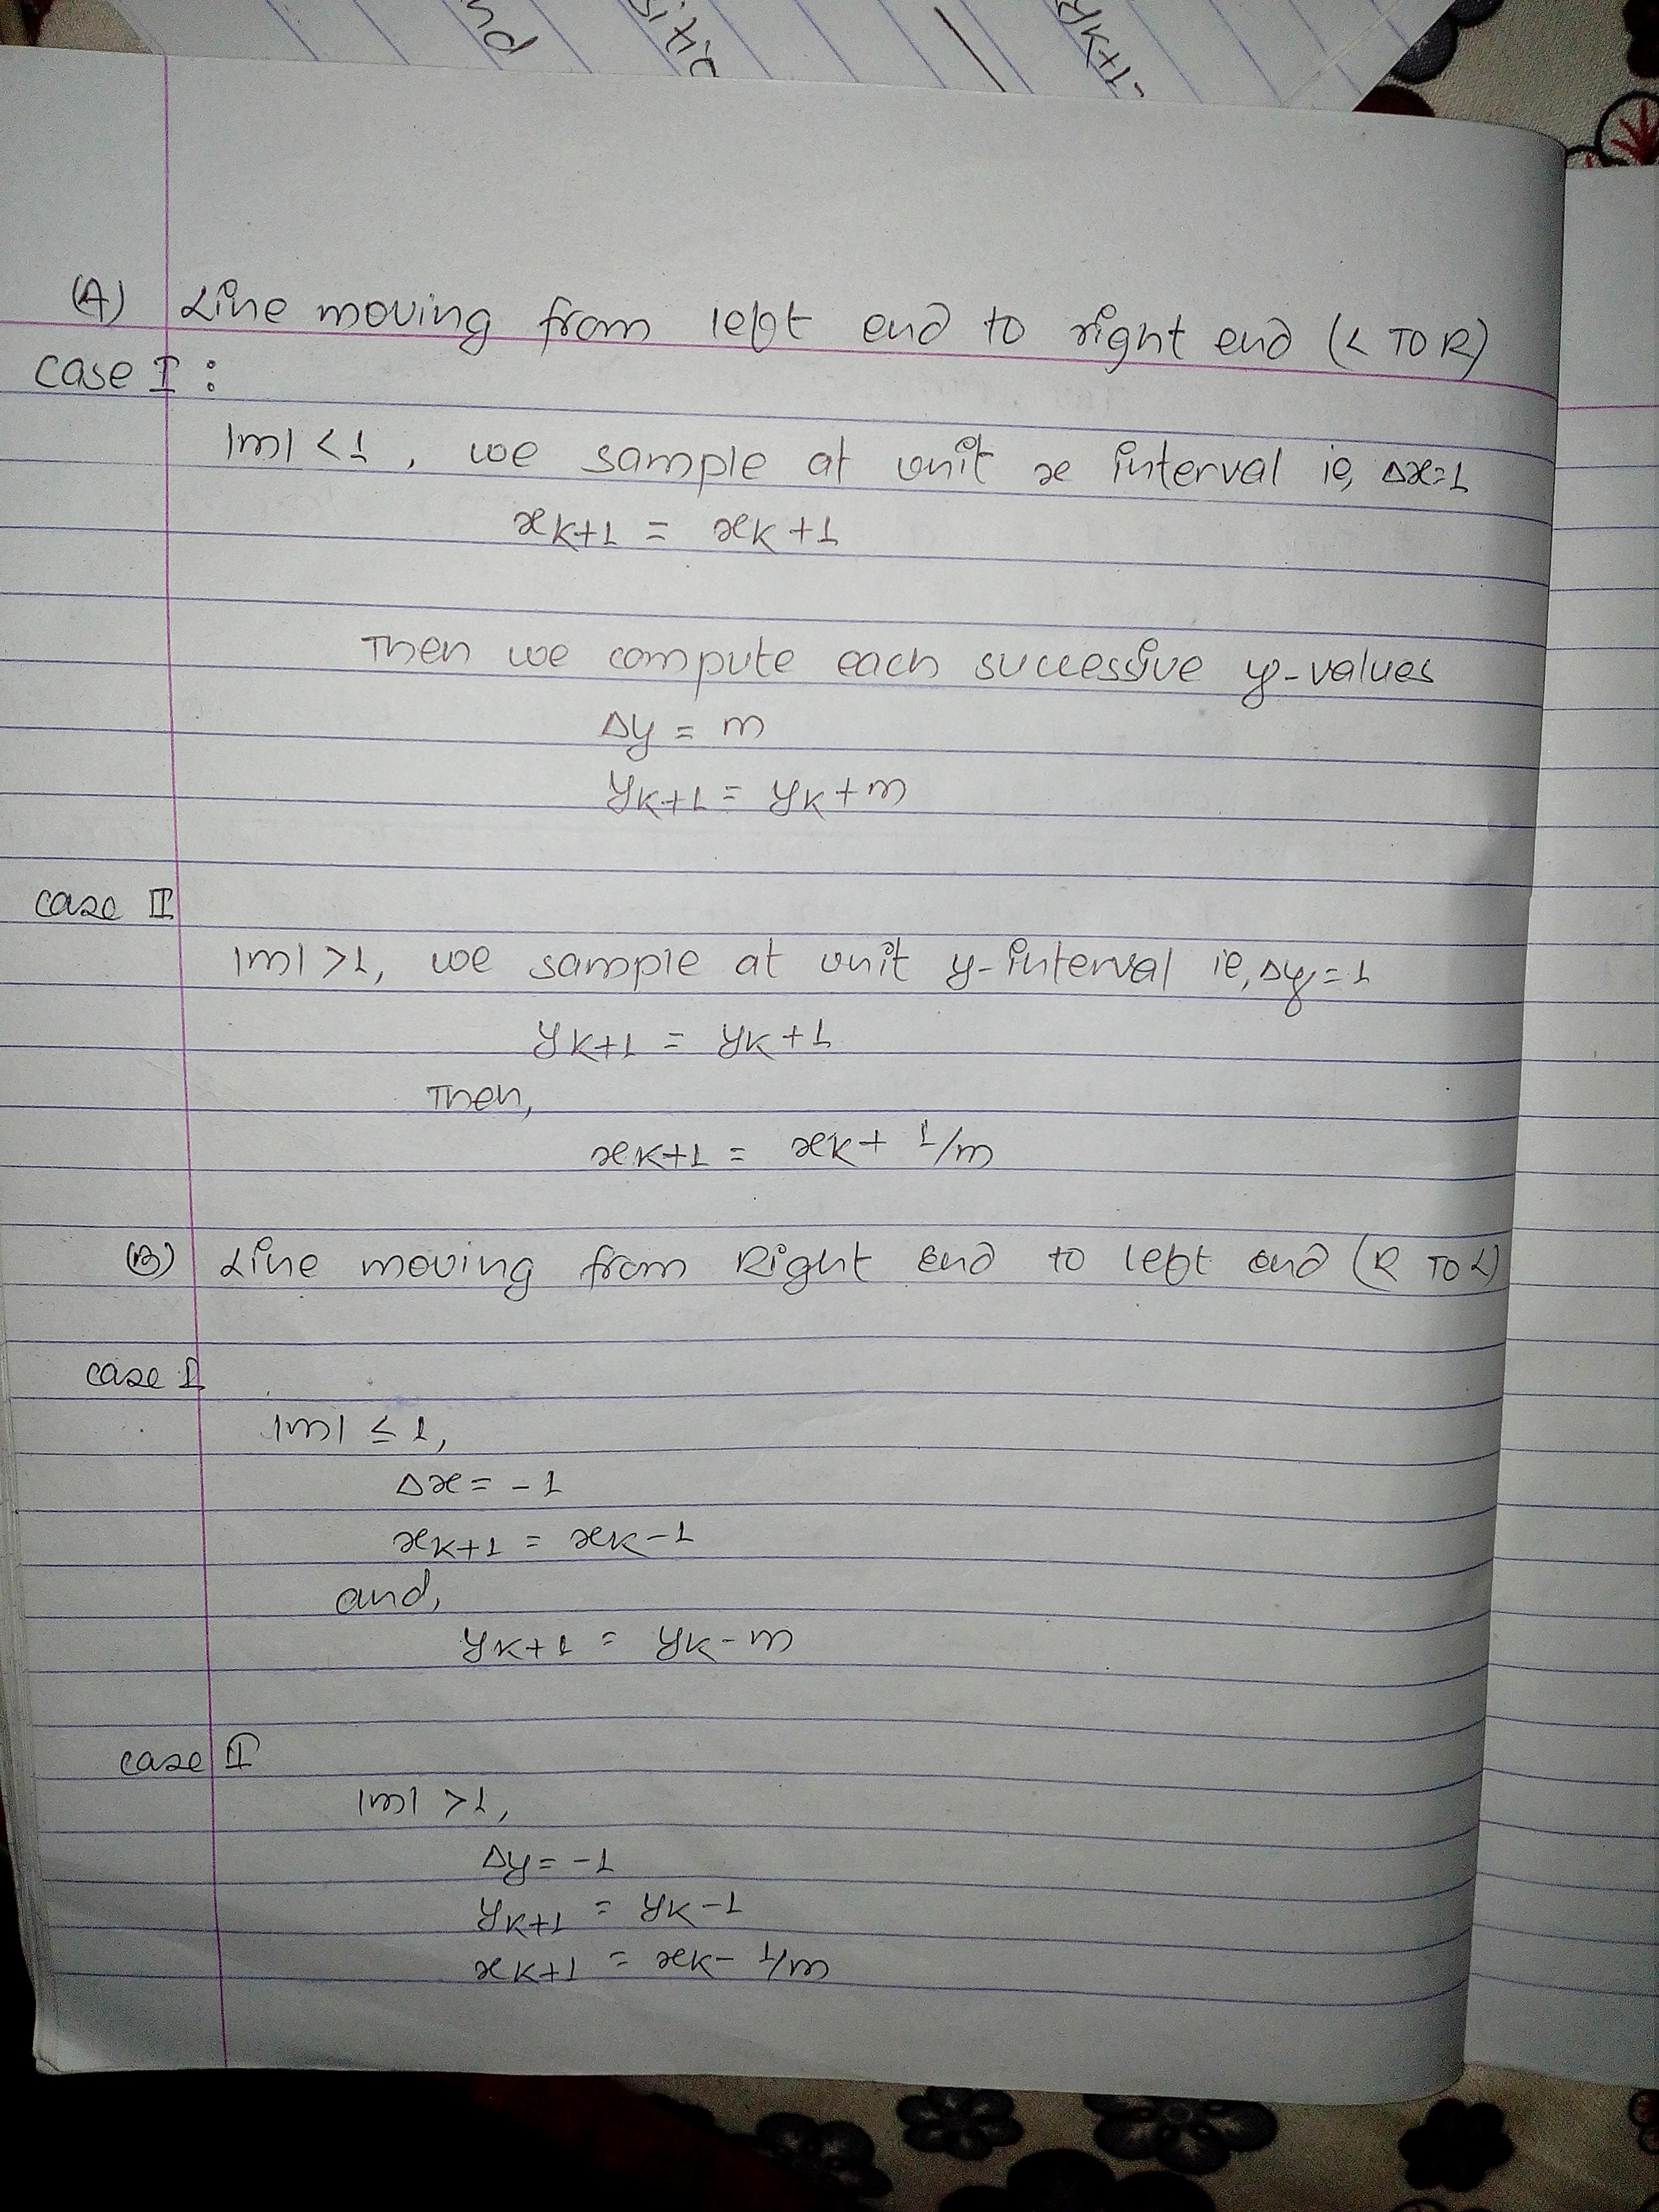 nd
sitio
yk+1,
(A) Line moving from left end to right end (L TO R)
case I :
|m| < 1 , we sample at unit x interval ie, Δx=1
xk+1 = xk +1
Then we compute each successive y-values
Δy = m
yk+1 = yk +m
case II
|m| >1, we sample at unit y-interval ie, Δy=1
yk+1 = yk +1
Then,
xk+1 = xk+ 1/m
(B) Line moving from Right end to left end (R TO L)
case I
|m| ≤ 1,
Δx= -1
xk+1 = xk-1
and,
yk+1 = yk-m
case II
|m| >1,
Δy= -1
yk+1 = yk-1
xk+1 = xk- 1/m